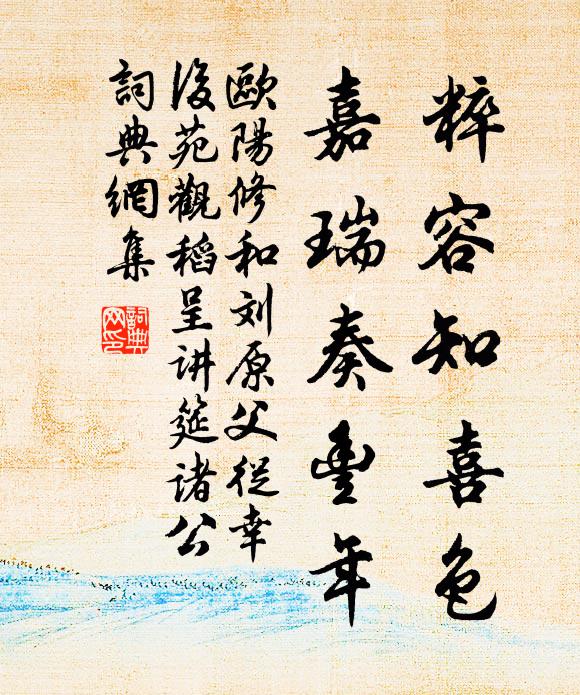 粹容知喜色
嘉瑞奏豐年
歐陽修和刘原父從幸
後苑觀稻呈讲筵诸公
詞典網集
詞典网印